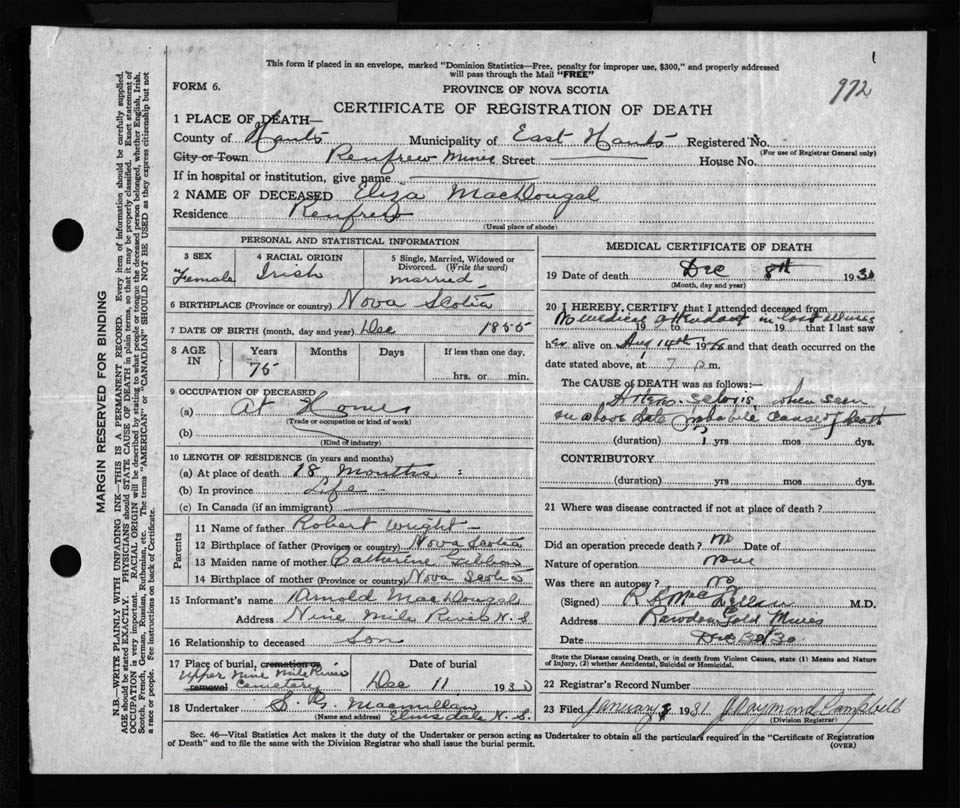 This form if placed in an envelope, marked "Dominion Statistics—Free, penalty for improper use, $300," and properly addressed
will pass through the Mail "FREE"
FORM 6.
PROVINCE OF NOVA SCOTIA
972
CERTIFICATE OF REGISTRATION OF DEATH
1 PLACE OF DEATH—
County of Hants Municipality of East Hants Registered No.
(For use of Registrar General only)
City or Town Renfrew Mines Street House No.
If in hospital or institution, give name
2 NAME OF DECEASED Eliza MacDougal
Residence Renfrew
(Usual place of abode)
PERSONAL AND STATISTICAL INFORMATION
3 SEX 4 RACIAL ORIGIN 5 Single, Married, Widowed or
Divorced. (Write the word)
Female Irish married
6 BIRTHPLACE (Province or country) Nova Scotia
7 DATE OF BIRTH (month, day and year) Dec 1855
8 AGE IN Years Months Days If less than one day,
75 hrs. or min.
9 OCCUPATION OF DECEASED
(a) At Home
(Trade or occupation or kind of work)
(b)
(Kind of industry)
10 LENGTH OF RESIDENCE (in years and months)
(a) At place of death 18 Months
(b) In province Life
(c) In Canada (if an immigrant)
Parents
11 Name of father Robert Wright
12 Birthplace of father (Province or country) Nova Scotia
13 Maiden name of mother Catherine
14 Birthplace of mother (Province or country) Nova Scotia
15 Informant's name Arnold MacDougal
Address Nine Mile River N.S.
16 Relationship to deceased Son
17 Place of burial, cremation or
removal Upper Nine Mile River Cemetery
Date of burial
Dec 11 1930
18 Undertaker Macmillan
(Name and address) Elmsdale N.S.
MEDICAL CERTIFICATE OF DEATH
19 Date of death Dec 8th 1930
(Month, day and year)
20 I HEREBY CERTIFY that I attended deceased from
No medical attendant in last illness
19 to 19 that I last saw
her alive on Aug 14th 19 and that death occurred on the
date stated above, at 7 p.m.
The CAUSE OF DEATH was as follows:
when seen
on above date probable cause of death
(duration) yrs mos dys.
CONTRIBUTORY
(duration) yrs mos dys.
21 Where was disease contracted if not at place of death?
Did an operation precede death? no Date of
Nature of operation none
Was there an autopsy? no
(Signed) M.D.
Address Rawdon Gold Mines
Date Dec 30/30
State the Disease causing Death, or in death from Violent Causes, state (1) Means and
Nature of Injury, (2) whether Accidental, Suicidal or Homicidal.
22 Registrar's Record Number
23 Filed January 1931 J. Raymond Campbell
(Division Registrar)
Sec. 46—Vital Statistics Act makes it the duty of the Undertaker or person acting as Undertaker to obtain all the particulars required in the "Certificate of Registration
of Death" and to file the same with the Division Registrar who shall issue the burial permit.
(OVER)
MARGIN RESERVED FOR BINDING
N.B.—WRITE PLAINLY WITH UNFADING INK—THIS IS A PERMANENT RECORD. Every item of information should be carefully supplied.
AGE should be stated EXACTLY. PHYSICIANS should STATE CAUSE OF DEATH in plain terms, so that it may be properly classified. Exact statement of
OCCUPATION is very important. RACIAL ORIGIN will be described by stating to what people or tongue the deceased person belonged, whether English, Irish,
Scotch, French, German, Russian, Ruthenian, etc. The terms "AMERICAN" or "CANADIAN" SHOULD NOT BE USED as they express citizenship but not
a race or people. See instructions on back of Certificate.